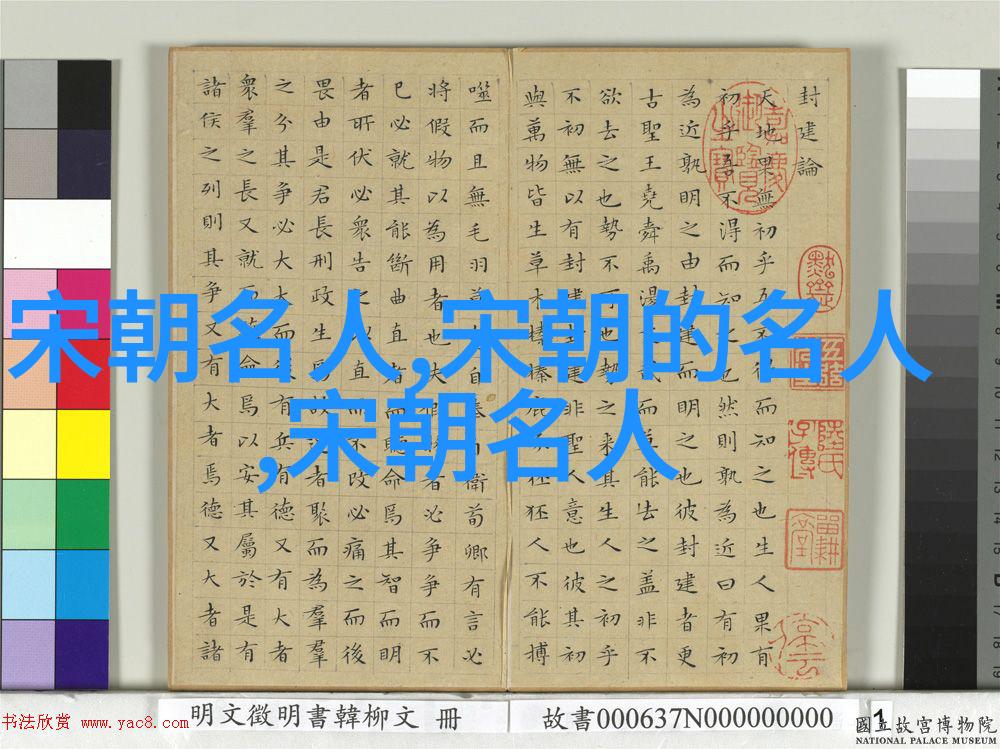 宋朝名人,宋朝的名人
,宋朝名人
封建論
天地果無初乎而知之也生人果有
初乎吾不得而知之也然則孰為近曰有初
為近孰明之由封建而明之也彼封建者更
古聖王堯舜禹湯而莫能去之蓋非不
欲去之也勢不可也勢之來其生人之初乎
不初無以有封建非聖人意也彼其初
與萬物皆生草木榛榛狉人不能搏
噬而且無毛羽自衛荀卿有言必
將假物以為用者也夫者必爭爭而不
已必就其能斷曲直者而聽命焉其智而明
者所伏必眾告之以直而不改必痛之而後
畏由是君長刑政生者聚而為羣
之分其爭必大大而有兵有德又有大者
眾羣之長又就命焉以安其屬於是有
諸侯之列則其爭又有大者焉德又大者諸
嘉慶御覽之寶
明文徵明書韓柳文 冊
故書000637N000000000
1
國立故宮博物院
NATIONAL PALACE MUSEUM
书法欣赏 www.yac8.com